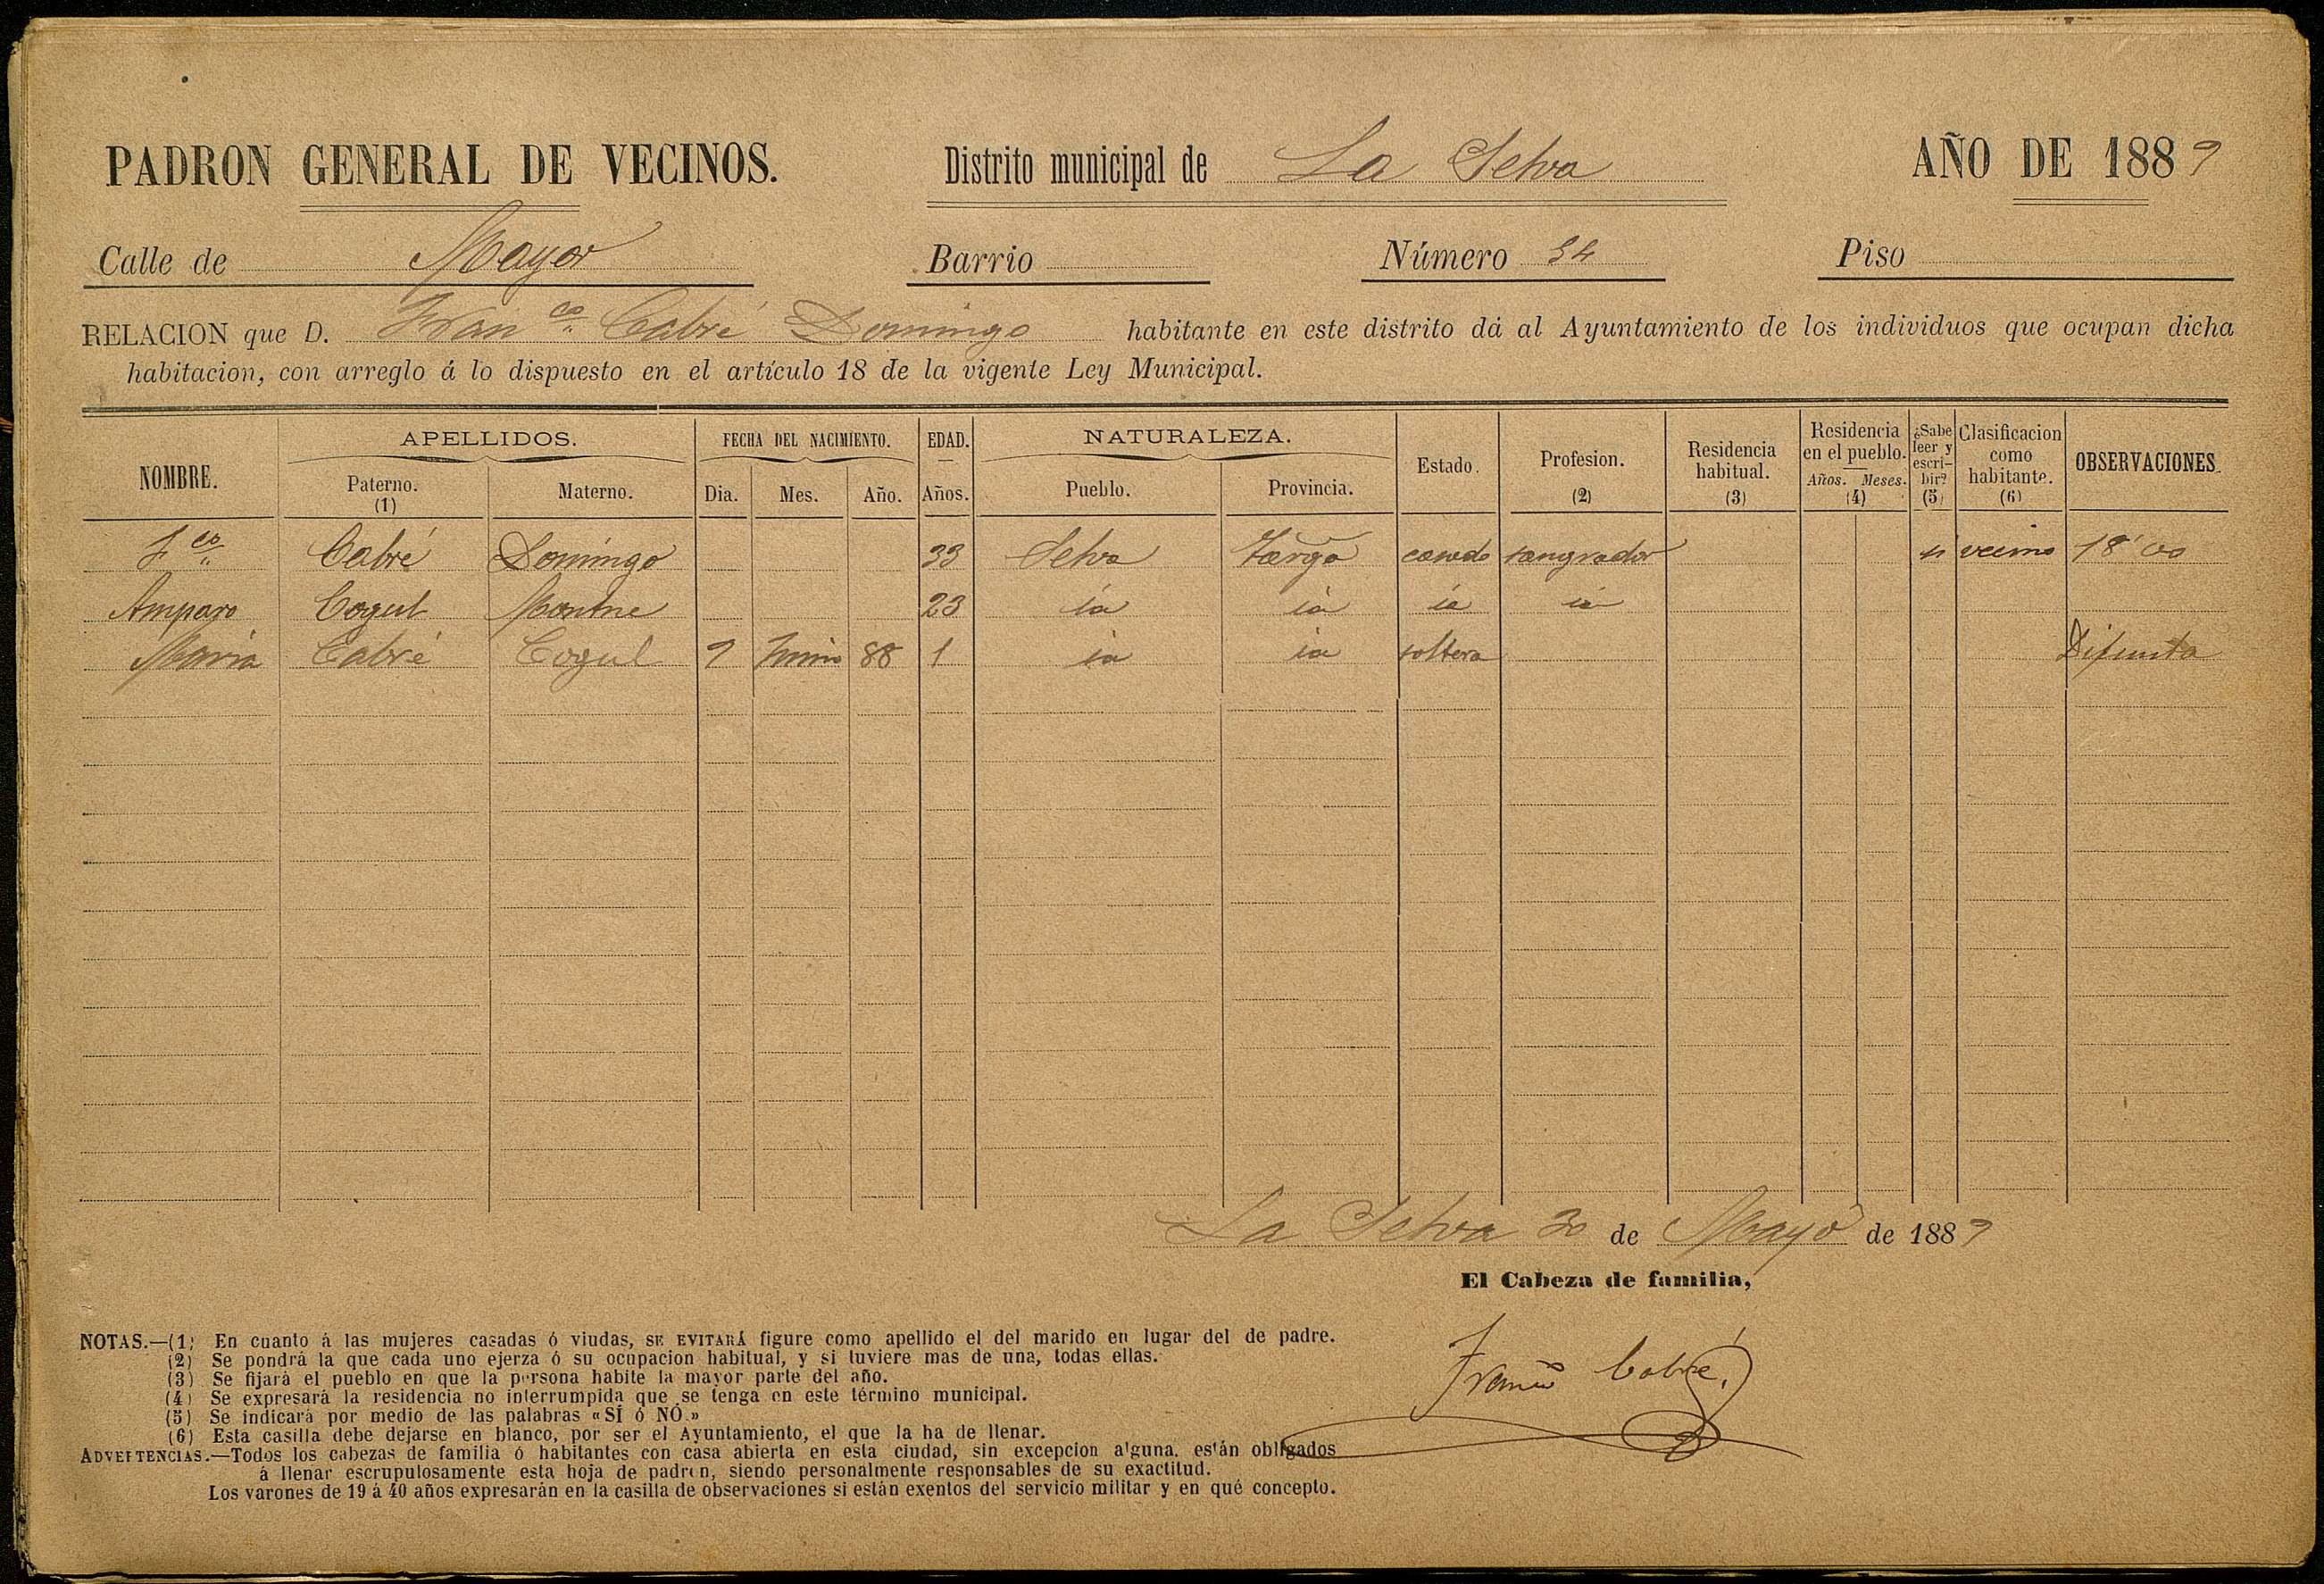 PADRON GENERAL DE VECINOS. Distrito municipal de La Selva AÑO DE 1889
Calle de Mayor Barrio Número 34 Piso
RELACION que D. Fran.co Cabré Domingo habitante en este distrito dá al Ayuntamiento de los individuos que ocupan dicha
habitacion, con arreglo á lo dispuesto en el artículo 18 de la vigente Ley Municipal.
NOMBRE. APELLIDOS. Paterno. (1) Materno. FECHA DEL NACIMIENTO. Dia. Mes. Año. EDAD. Años. NATURALEZA. Pueblo. Provincia. Estado. Profesion. (2) Residencia habitual. (3) Residencia en el pueblo. Años. Meses. (4) ¿Sabe leer y escribir? (5) Clasificacion como habitante. (6) OBSERVACIONES.
F.co Cabré Domingo 33 Selva Tarrga casado sangrador si vecino 18'00
Amparo Cogul 23 id id id id
Maria Cabré Cogul 9 Junio 88 1 id id soltera Difunta
La Selva 30 de Mayo de 1889
El Cabeza de familia,
Franco Cabré
NOTAS.—(1) En cuanto á las mujeres casadas ó viudas, SE EVITARÁ figure como apellido el del marido en lugar del de padre.
(2) Se pondrá la que cada uno ejerza ó su ocupacion habitual, y si tuviere mas de una, todas ellas.
(3) Se fijará el pueblo en que la persona habite la mayor parte del año.
(4) Se expresará la residencia no interrumpida que se tenga en este término municipal.
(5) Se indicará por medio de las palabras «SÍ ó NÓ.»
(6) Esta casilla debe dejarse en blanco, por ser el Ayuntamiento, el que la ha de llenar.
ADVERTENCIAS.—Todos los cabezas de familia ó habitantes con casa abierta en esta ciudad, sin excepcion alguna, están obligados
á llenar escrupulosamente esta hoja de padron, siendo personalmente responsables de su exactitud.
Los varones de 19 á 40 años expresarán en la casilla de observaciones si están exentos del servicio militar y en qué concepto.